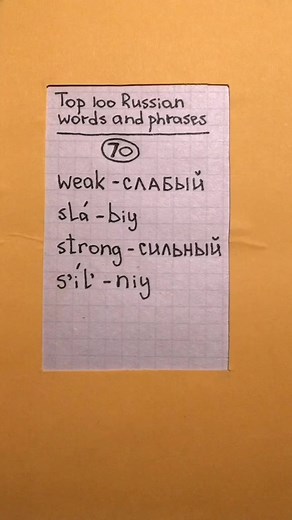 Top 100 Russian
words and phrases
70
weak - СЛАБЫЙ
slá - biy
strong - СИЛЬНЫЙ
s'íl' - niy